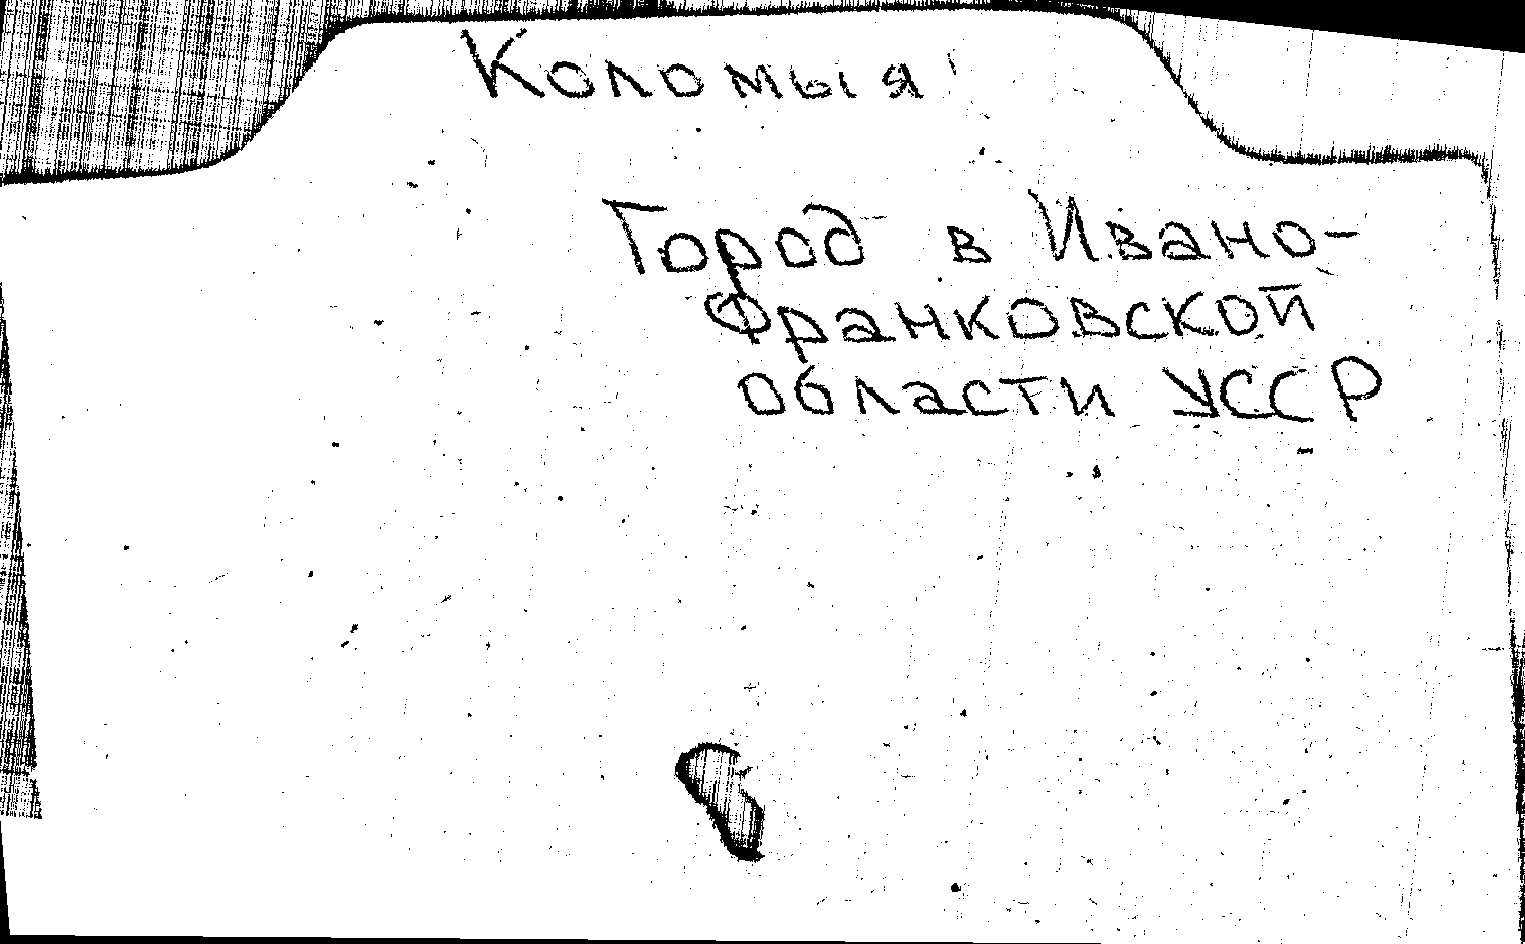 Коломыя
Город в Ивано-
Франковской
области УССР